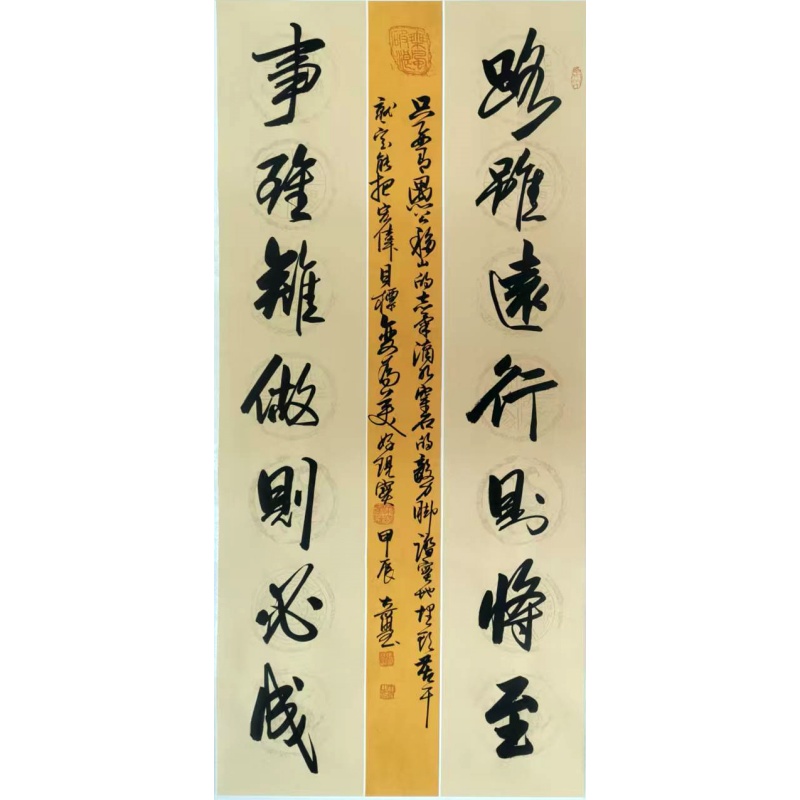 路雖遠行则將至
只要有愚公移山的志气滴水穿石的毅力脚踏實地埋頭苦干
就完能把宏偉目標變為美好現實
甲辰
事雖難做則必成